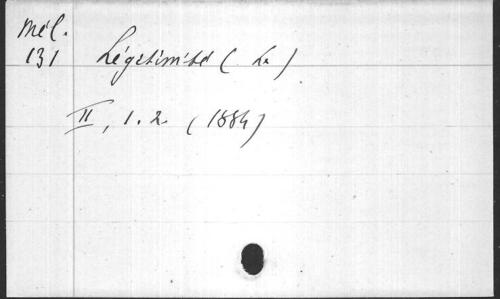 Mél.
131 Légitimité (La)
II, 1.2 (1884)